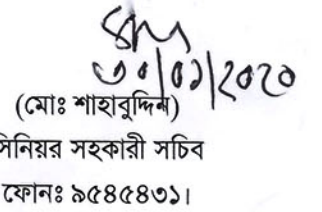 ৩০/০১/২০২০
(মোঃ শাহাবুদ্দিন)
সিনিয়র সহকারী সচিব
ফোনঃ ৯৫৪৫৪৩১।